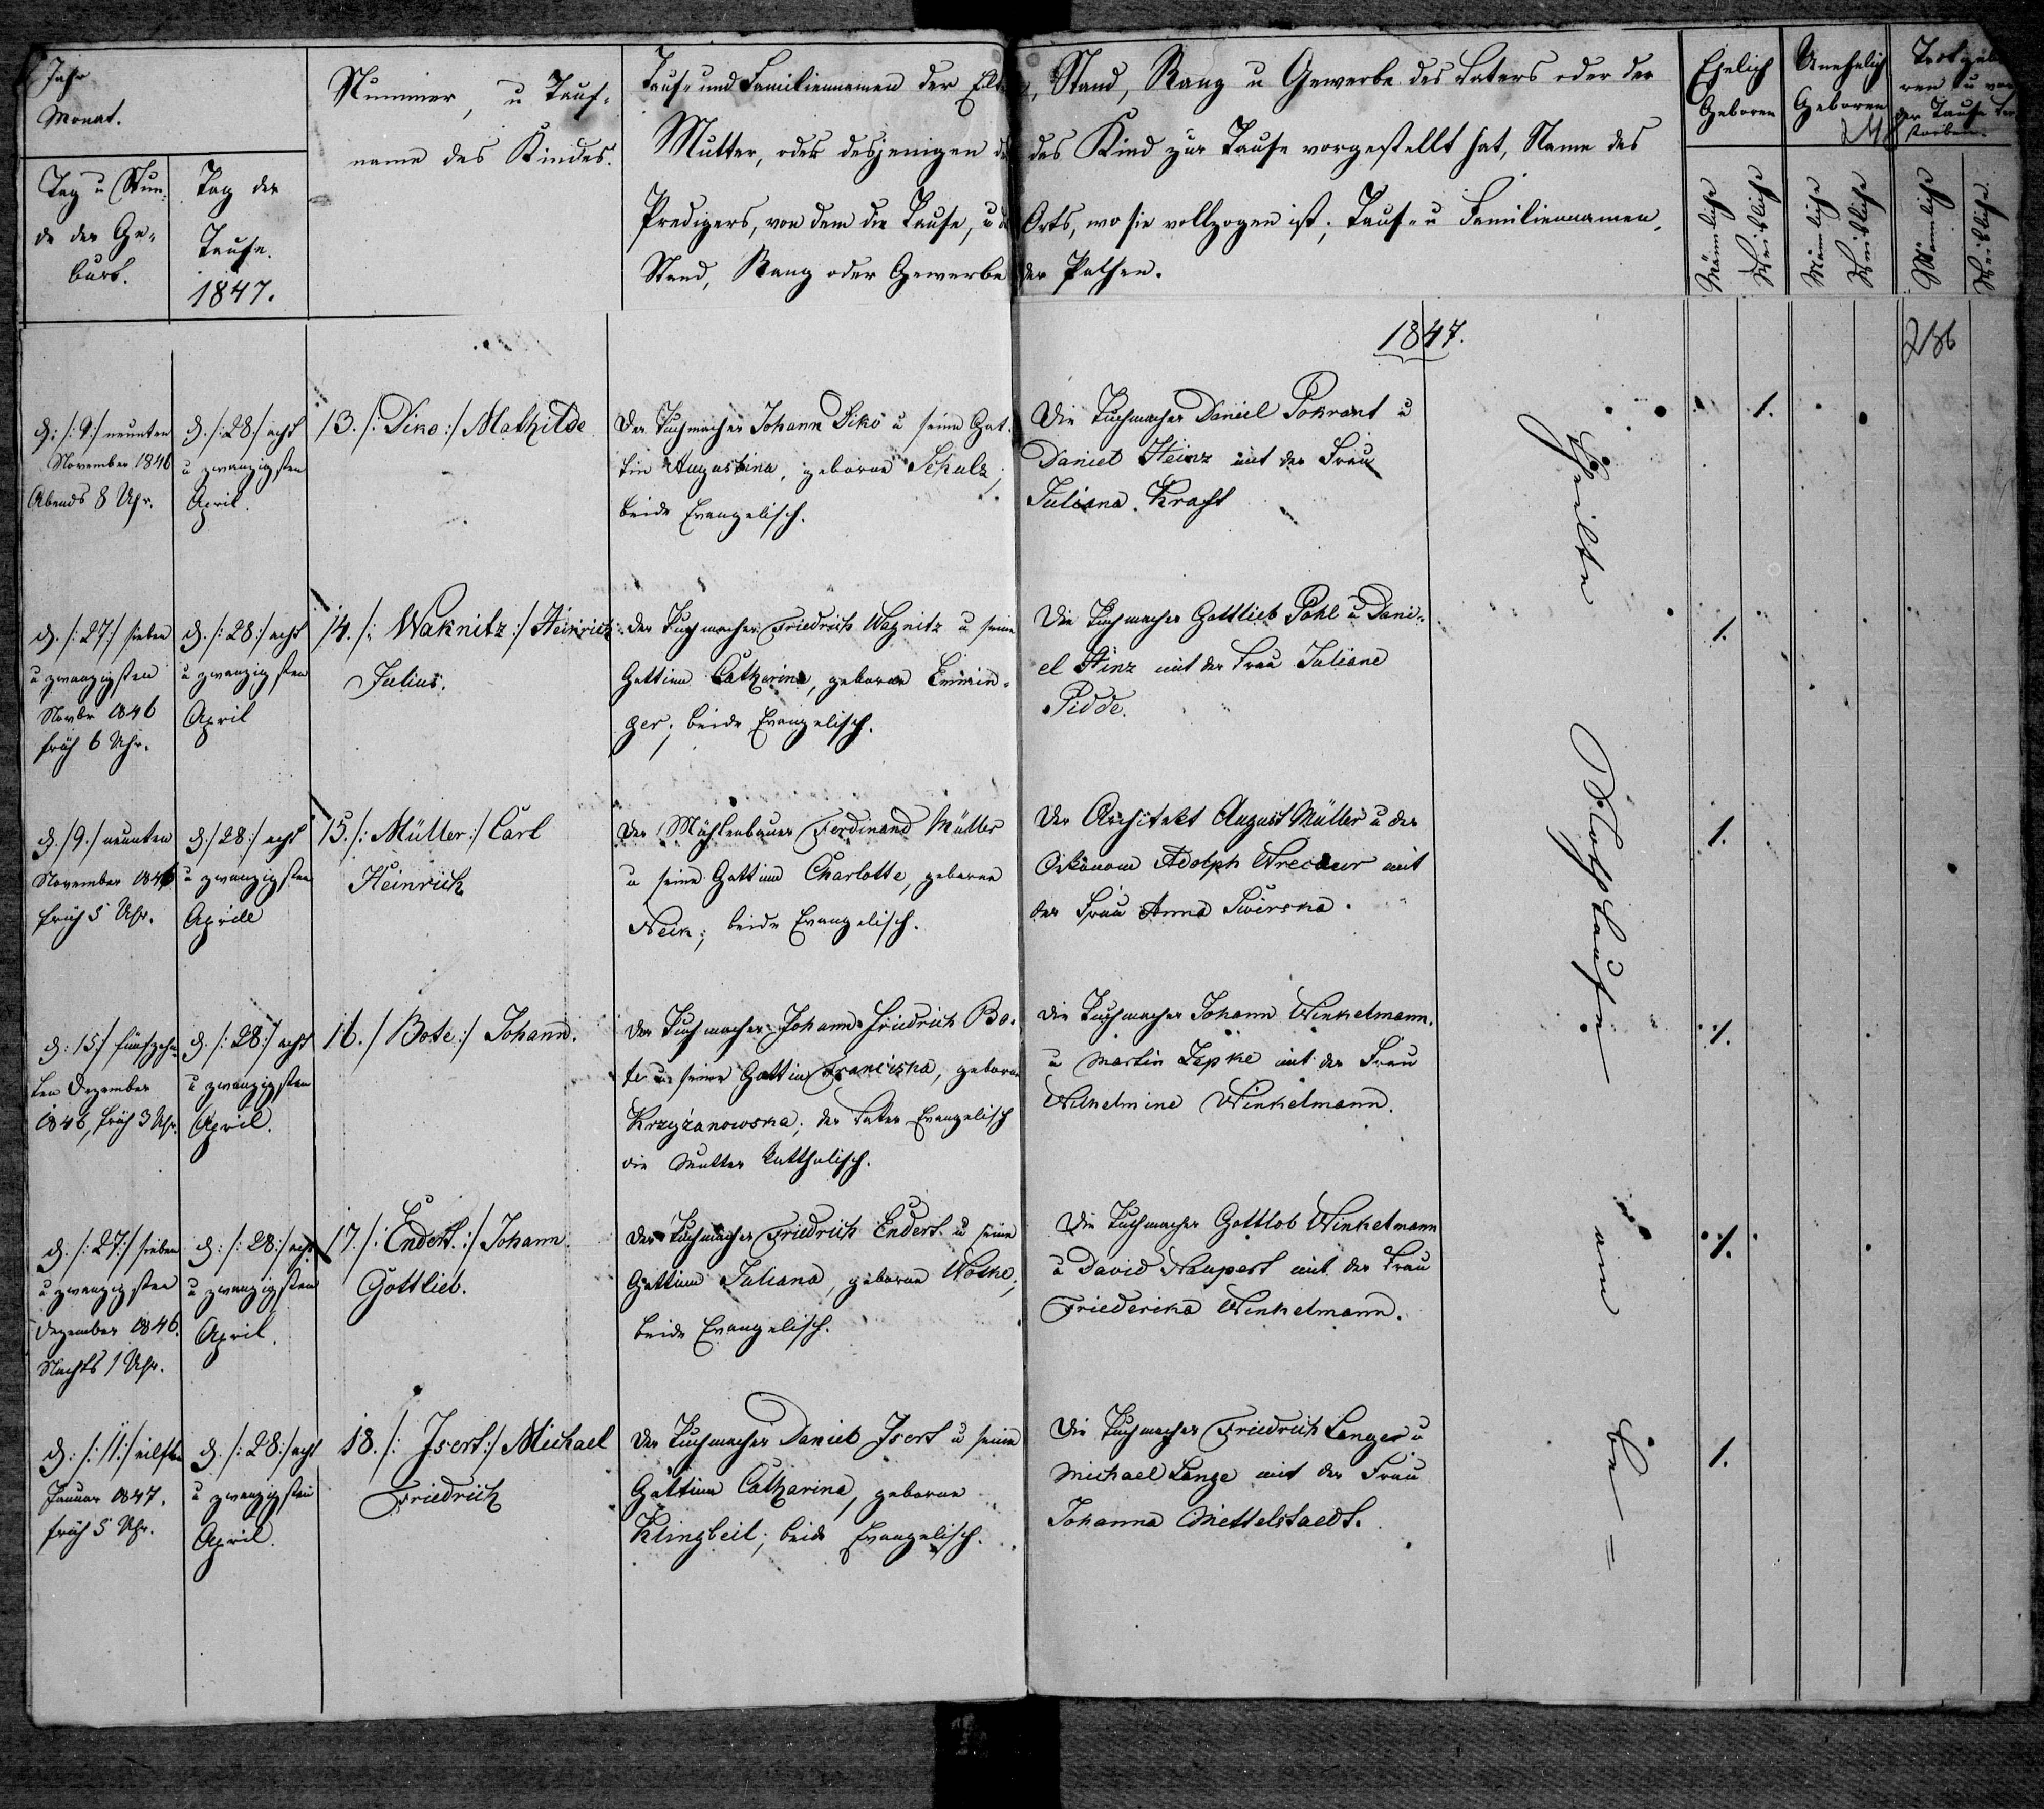 Jahr
Monat.
Tag u Stun-
de der Ge-
burt.
Tag der
Taufe.
1847.
Nummer, u Tauf-
name des Kindes.
Tauf- und Familiennamen der
Mutter, oder desjenigen
Predigers, von dem die Taufe, u
Stand, Rang oder Gewerbe
Stand, Rang u Gewerbe des Vaters oder der
das Kind zur Taufe vorgestellt hat, Name des
Orts, wo sie vollzogen ist; Tauf- u Familiennamen,
der Pathen.
Ehelich
Geboren
Unehelich
Geboren
ren u vor
der Taufe
storben.
Männliche
Weibliche
Männliche
Weibliche
Männliche
Weibliche
1847.
236
d: /:9:/ neunten
November 1846
Abends 8 Uhr.
d. /:28:/ acht
u zwanzigsten
April.
13. /: Diko :/ Mathilde
Der Tuchmacher Johann Diko u seine Gat-
tin Augustina, geborne Schulz;
beide Evangelisch.
Die Tuchmacher Daniel Pokrant u
Daniel Heinz mit der Frau
Juliana Kraft
1.
d. /:27:/ sieben
u zwanzigsten
Novbr 1846
früh 6 Uhr.
d. /:28:/ acht
u zwanzigsten
April
14. /: Waknitz :/ Heinrich
Julius.
Der Tuchmacher Friedrich Wagnitz u seine
Gattinn Catharina, geborne
ger; beide Evangelisch.
Die Tuchmacher Gottlieb Pohl u Dani-
el Hinz mit der Frau Juliane
Pidde.
1.
d. /9./ neunten
November 1846
früh 5 Uhr.
d. /28:/ acht
u zwanzigsten
Aprill
15. /: Müller :/ Carl
Heinrich
Der Mühlenbauer Ferdinand Müller
u seine Gattinn Charlotte, geborne
Neik; beide Evangelisch.
Der Architekt August Müller u der
Oekonom Adolph mit
der Frau Anna Swirska.
1.
d: 15:/ fünfzehn-
ten Dezember
1846, früh 3 Uhr.
d. /:28:/ acht
u zwanzigsten
April.
16. / Bote :/ Johann.
Der Tuchmacher Johann Friedrich Bo-
te u seine Gattin Franciska, geborne
Krzyżanowska; der Vater Evangelisch
die Mutter Katholisch.
Die Tuchmacher Johann Winkelmann
u Martin Zepke mit der Frau
Wilhelmine Winkelmann.
1.
d. /:27:/ sieben
u zwanzigsten
Dezember 1846.
Nachts 1 Uhr.
d: /:28:/ acht
u zwanzigsten
April.
17. /: Endert :/ Johann
Gottlieb.
Der Tuchmacher Friedrich Endert u seine
Gattinn Juliana, geborne Wolke;
beide Evangelisch.
Die Tuchmacher Gottlob Winkelmann
u David Naupert mit der Frau
Friederika Winkelmann.
1.
d: /:11:/ eilften
Januar 1847.
früh 5 Uhr.
d. /:28:/ acht
u zwanzigsten
April.
18. /: Isert :/ Michael
Friedrich
Der Tuchmacher Daniel Isert u seine
Gattinn Catharina, geborne
Klingbeil; beide Evangelisch.
Die Tuchmacher Friedrich Lenger u
Michael Lenge mit der Frau
Johanna Mittelstaedt.
1.